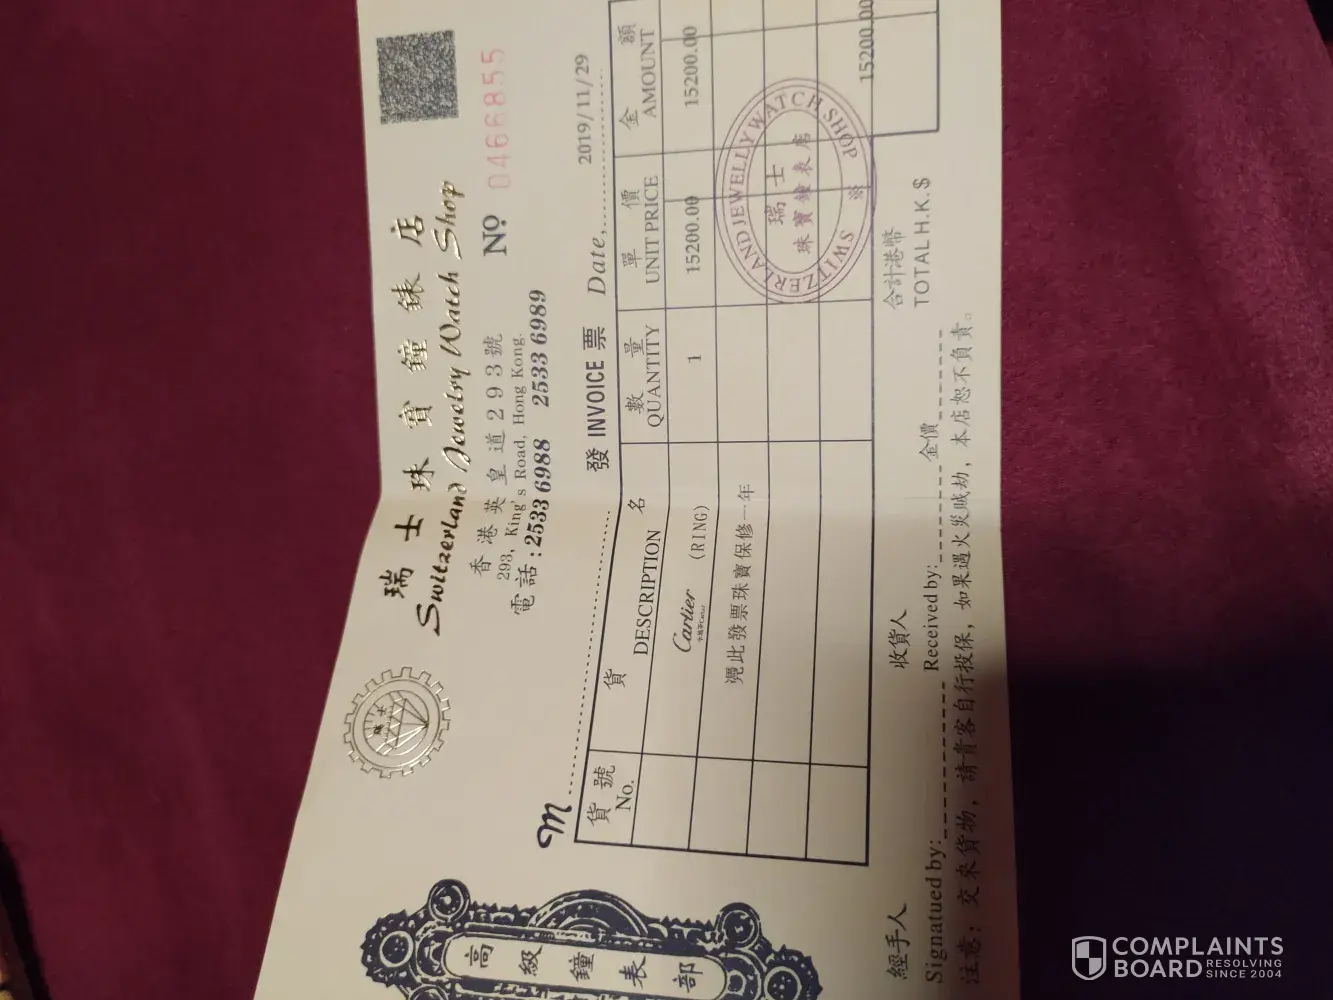 瑞士珠寶鐘錶店
Switzerland Jewelry Watch Shop
香港英皇道293號
293, King's Road, Hong Kong.
電話:2533 6988 2533 6989
No 0466855
瑞士
M
發 INVOICE 票
Date, 2019/11/29
貨號 貨名 數量 單價 金額
No. DESCRIPTION QUANTITY UNIT PRICE AMOUNT
Cartier (RING) 1 15200.00 15200.00
卡地亞Cartier
憑此發票珠寶保修一年
SWITZERLAND JEWELLY WATCH SHOP ※
瑞士
珠寶鐘表店
15200.00
經手人 收貨人 金價 合計港幣
Signatued by: Received by: TOTAL H.K.$
注意：交來貨物，請貴客自行投保，如果遇火災賊劫，本店恕不負責。
高級鐘表部
COMPLAINTS
BOARD RESOLVING
SINCE 2004